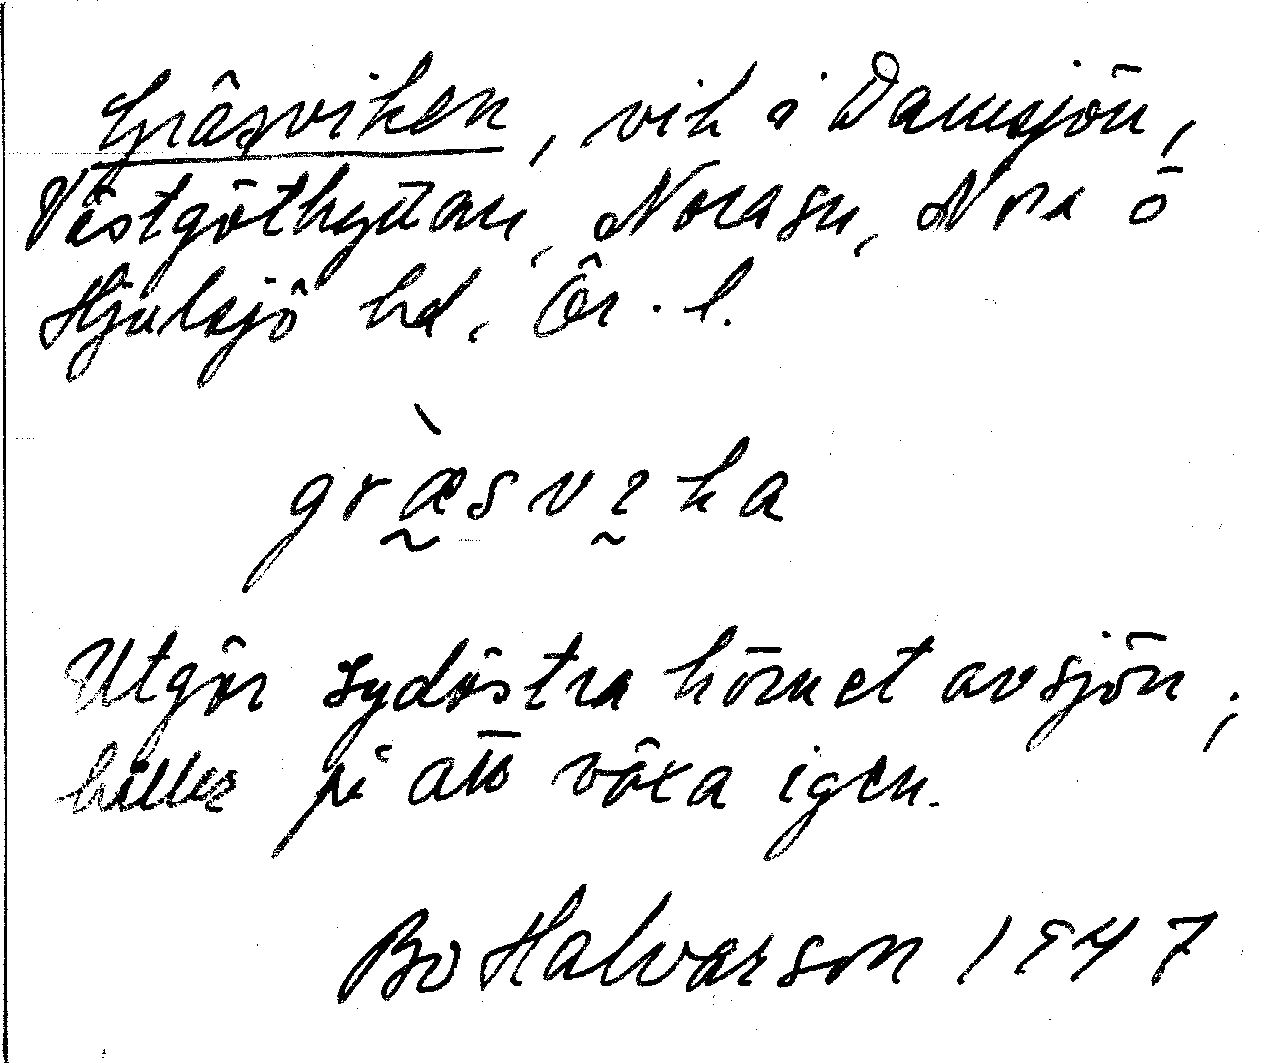 Gräsviken, vik i Dammsjön,
Västgöthyttan, Norasn, Nora o
Hjulsjö hd, Ör. l.
græ̀svika
Utgör sydöstra hörnet av sjön;
håller på att växa igen.
Bo Halvarson 1947